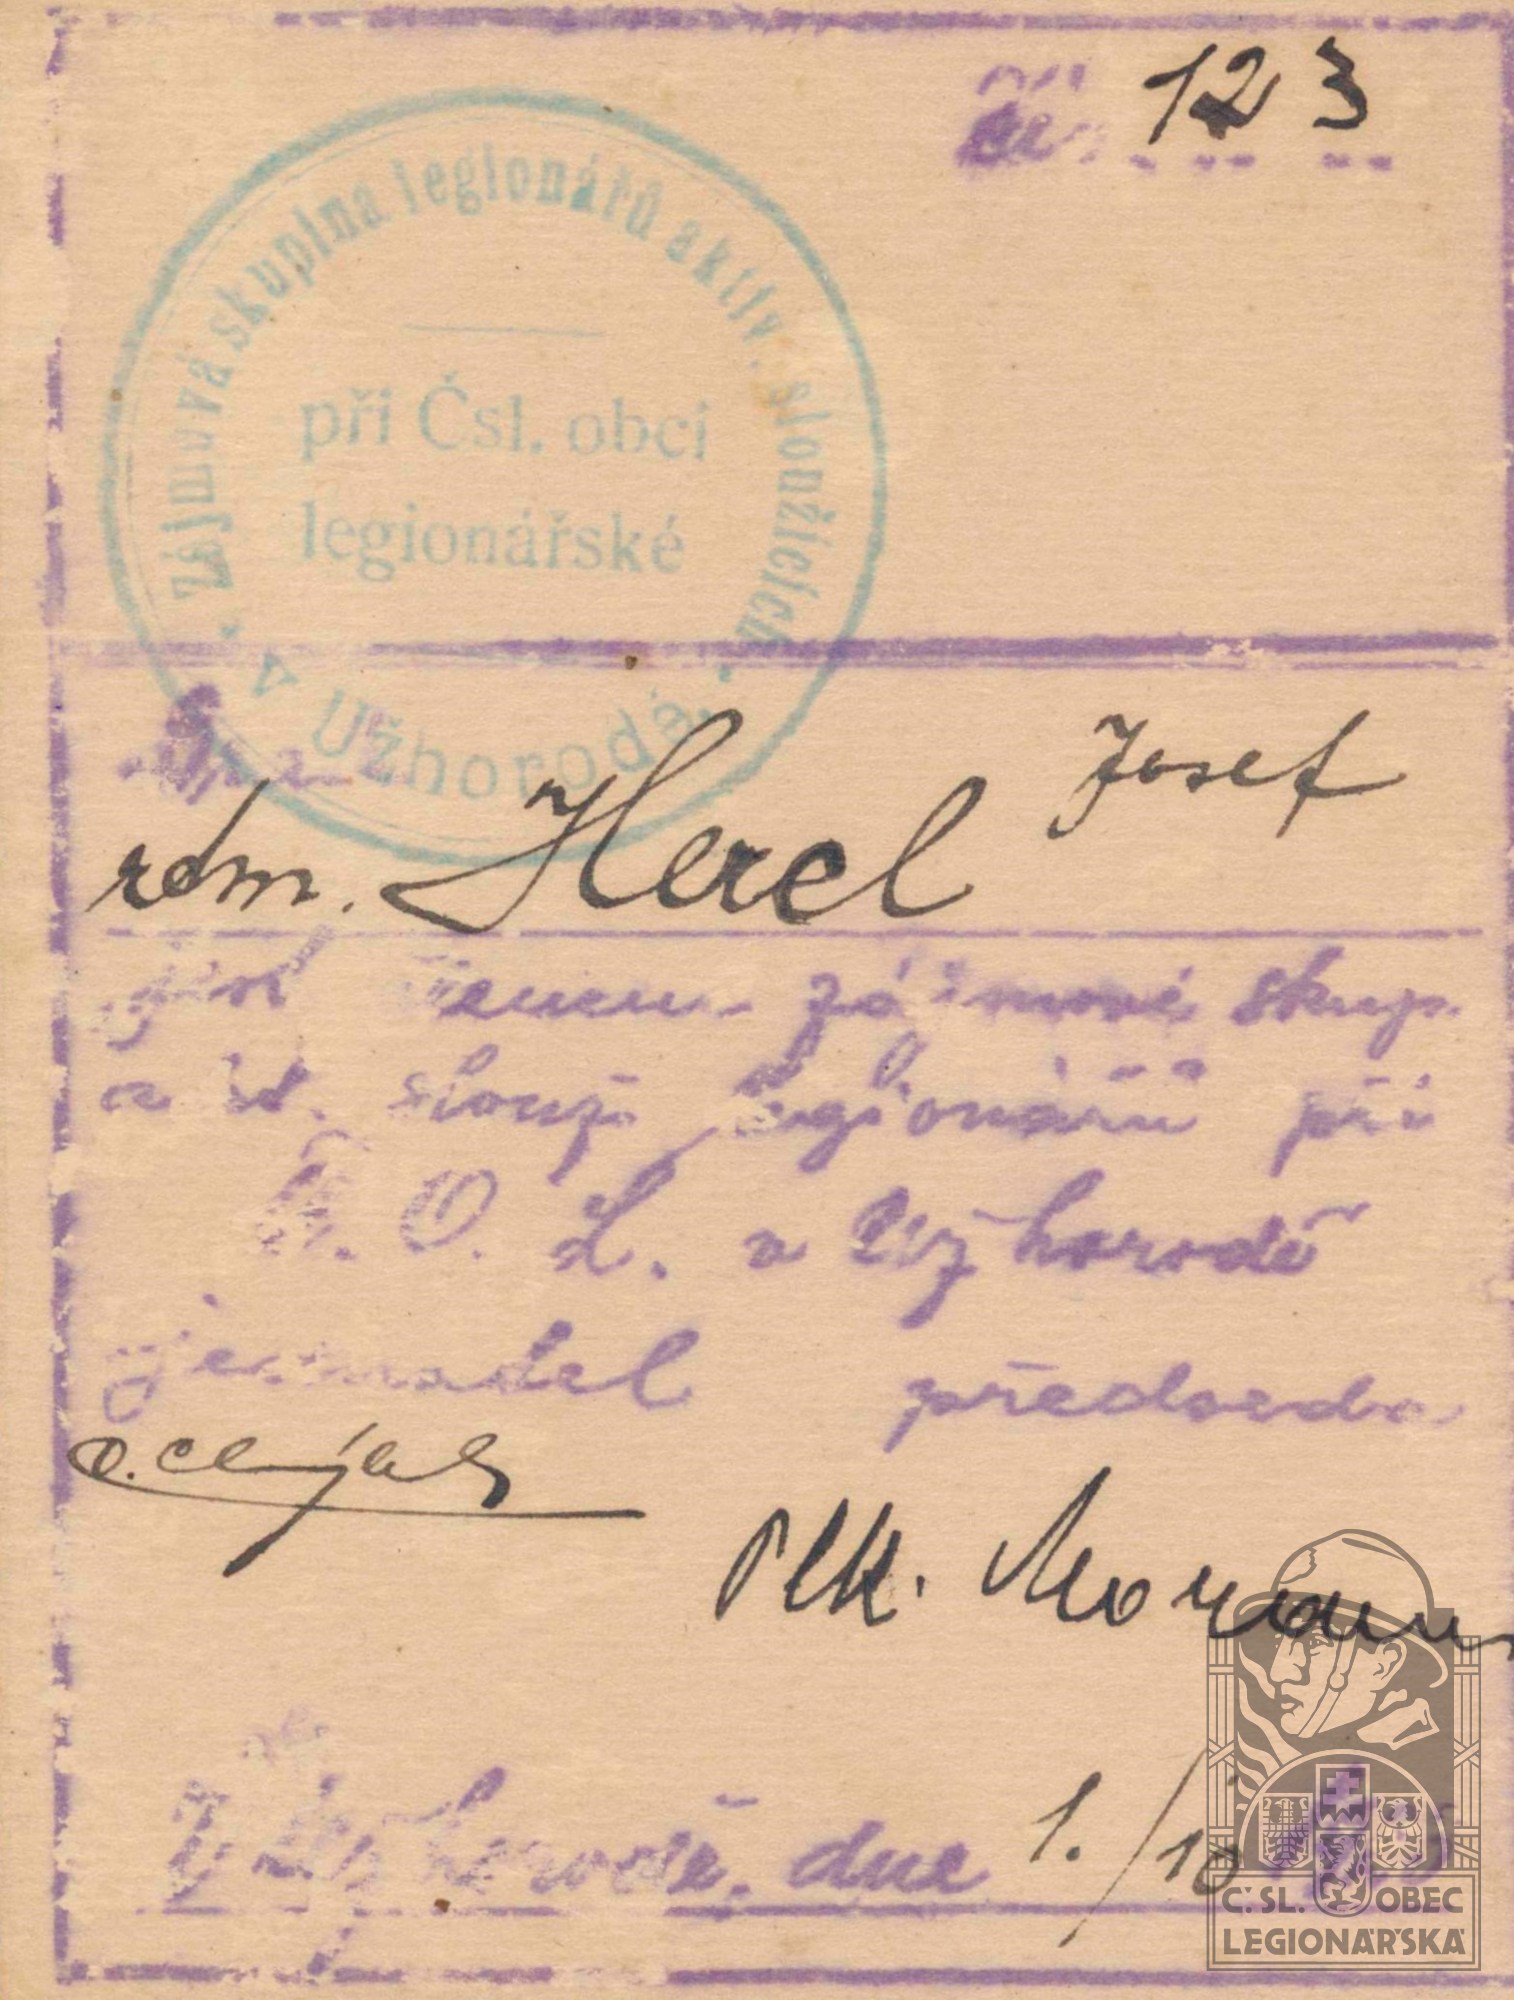 Čís. 123
Zájmová skupina legionářů aktiv. sloužících
při Čsl. obci
legionářské
v Užhorodě
Pan
rtm. Herel Josef
jest členem zájmové skup.
akt. slouž. legionářů při
Č. O. L. v Užhorodě
jednatel předseda
Plk.
V Užhorodě, dne 1./10
Č. SL. OBEC
LEGIONÁŘSKÁ